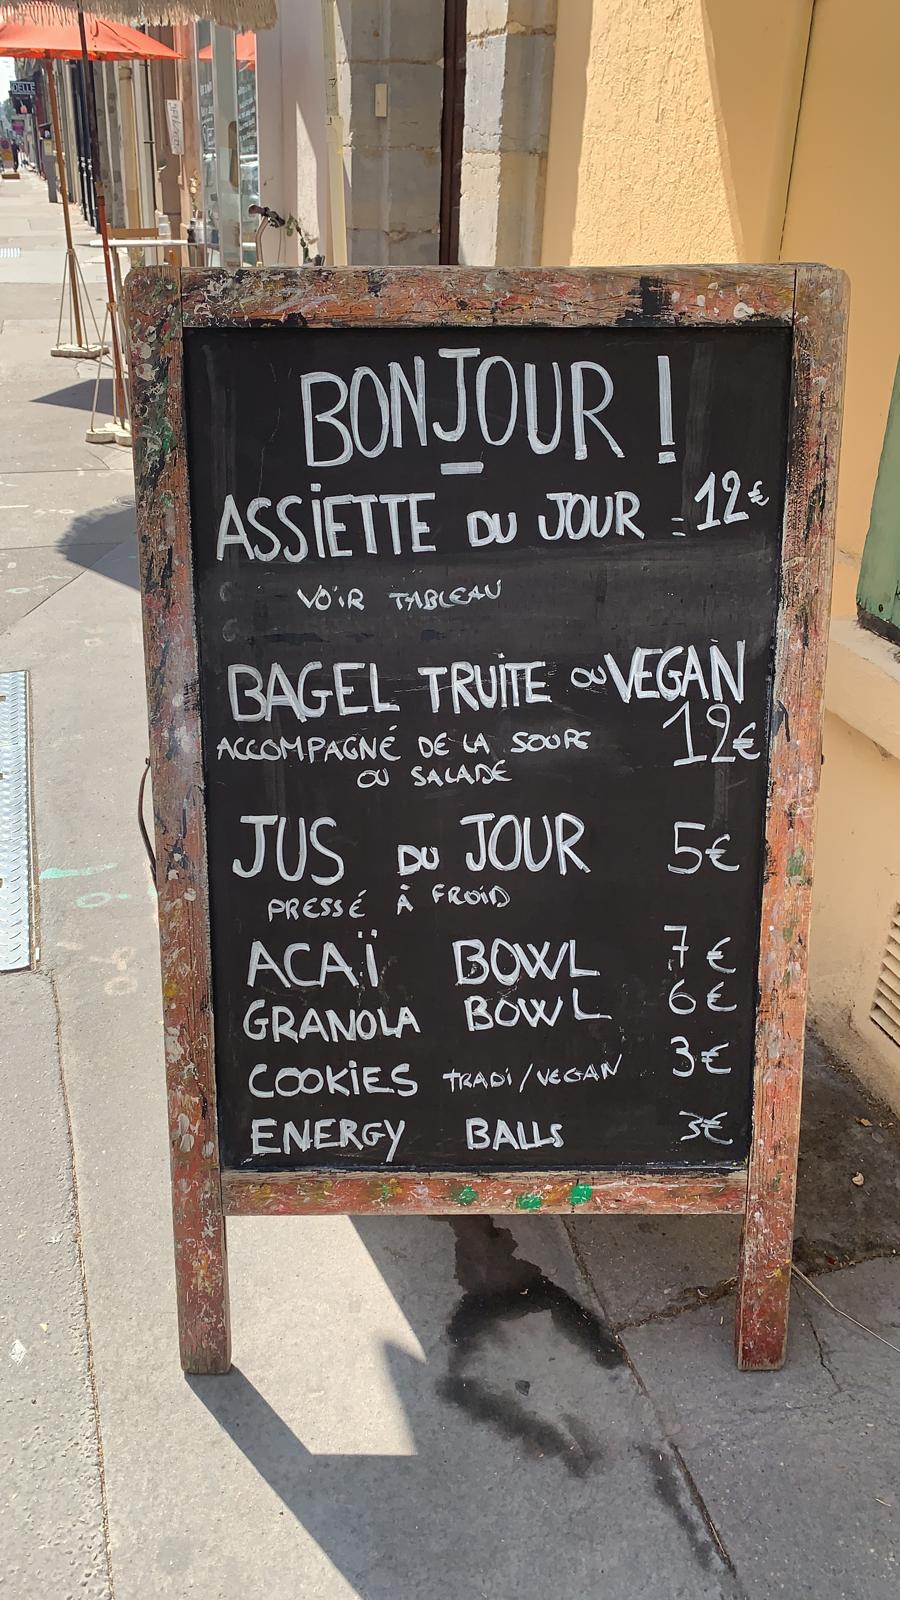 BONJOUR !
ASSIETTE DU JOUR = 12€
VOIR TABLEAU
BAGEL TRUITE OU VEGAN
12€
ACCOMPAGNÉ DE LA SOUPE
OU SALADE
JUS DU JOUR 5€
PRESSÉ À FROID
ACAÏ BOWL 7€
GRANOLA BOWL 6€
COOKIES TRADI/VEGAN 3€
ENERGY BALLS 3€